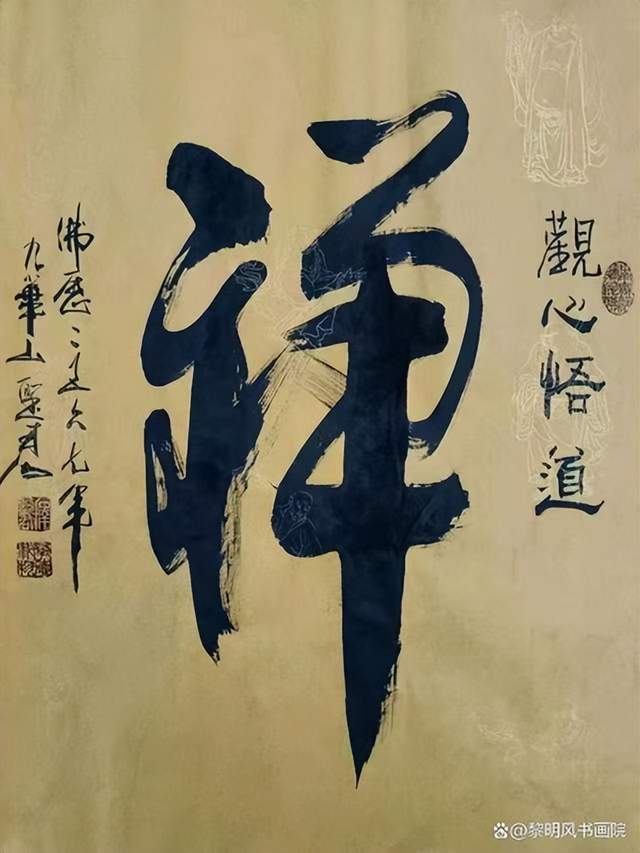 觀心悟道
禅
佛歷二五六九年
九華山
@黎明风书画院